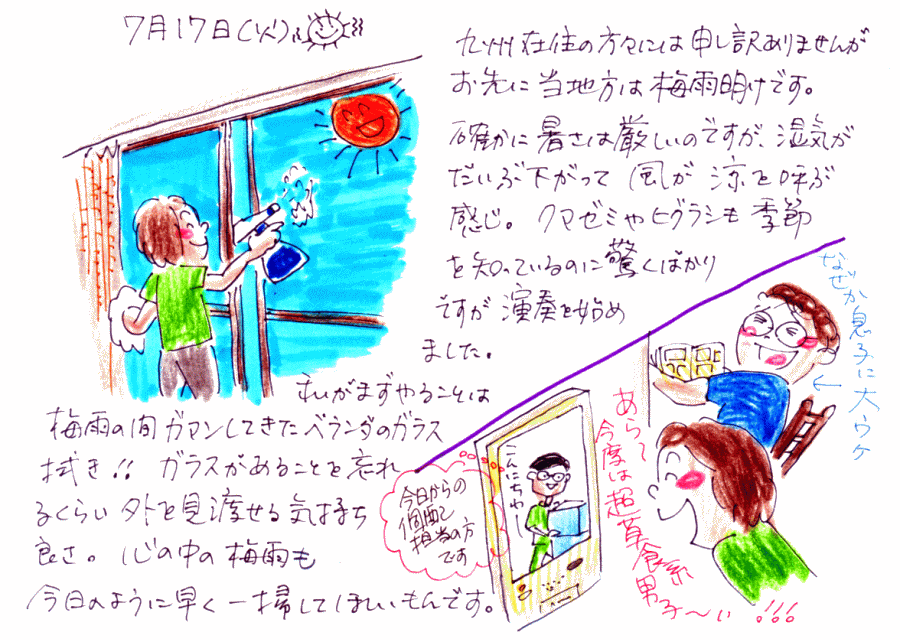 7月17日(火)
九州在住の方々には申し訳ありませんが
お先に当地方は梅雨明けです。
確かに暑さは厳しいのですが、湿気が
だいぶ下がって風が涼を呼ぶ
感じ。クマゼミやヒグラシも季節
を知っているのに驚くばかり
ですが演奏を始め
ました。
私がまずやることは
梅雨の間ガマンしてきたベランダのガラス
拭き!! ガラスがあることを忘れ
るくらい外を見渡せる気持ち
良さ。心の中の梅雨も
今日のように早く一掃してほしいもんです。
なぜか息子に大ウケ
あらって
今度は超草食系
男子〜い!!!
こんにちわー
今日からの
担当の方
です